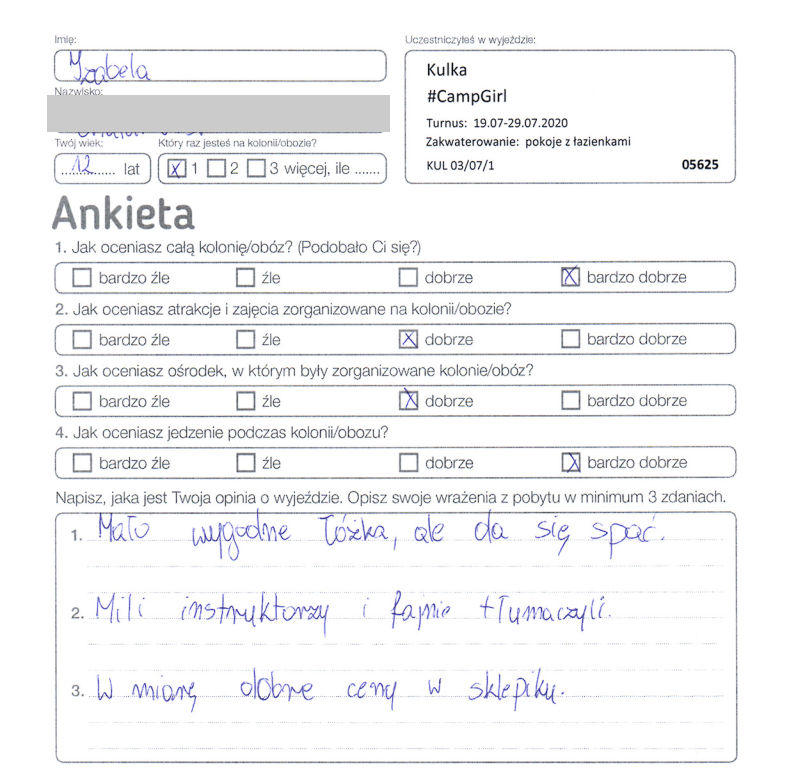 Imię:
Izabela
Nazwisko:
Twój wiek:
12 lat
Który raz jesteś na kolonii/obozie?
X 1 2 3 więcej, ile .......
Uczestniczyłeś w wyjeździe:
Kulka
#CampGirl
Turnus: 19.07-29.07.2020
Zakwaterowanie: pokoje z łazienkami
KUL 03/07/1 05625
Ankieta
1. Jak oceniasz całą kolonię/obóz? (Podobało Ci się?)
bardzo źle źle dobrze X bardzo dobrze
2. Jak oceniasz atrakcje i zajęcia zorganizowane na kolonii/obozie?
bardzo źle źle X dobrze bardzo dobrze
3. Jak oceniasz ośrodek, w którym były zorganizowane kolonie/obóz?
bardzo źle źle X dobrze bardzo dobrze
4. Jak oceniasz jedzenie podczas kolonii/obozu?
bardzo źle źle dobrze X bardzo dobrze
Napisz, jaka jest Twoja opinia o wyjeździe. Opisz swoje wrażenia z pobytu w minimum 3 zdaniach.
1. Mało wygodne łóżka, ale da się spać.
2. Mili instruktorzy i fajnie tłumaczyli.
3. W miarę dobre ceny w sklepiku.